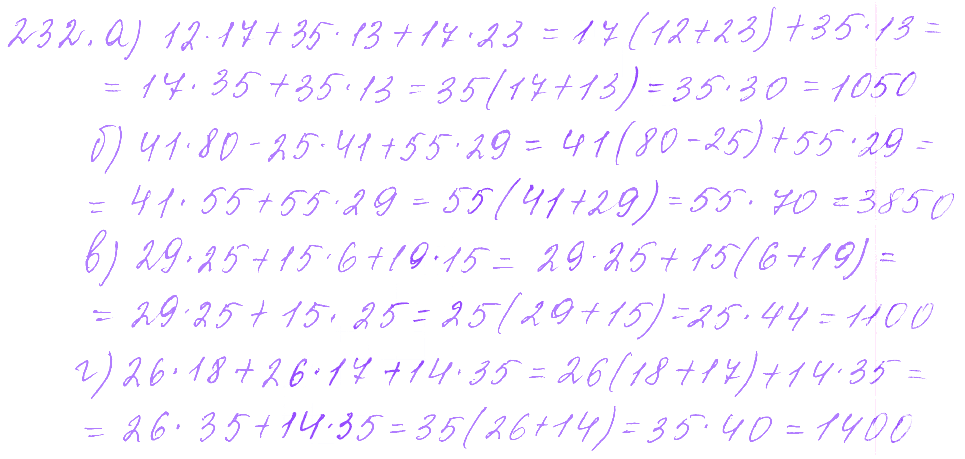 232. а) 12·17+35·13+17·23 = 17(12+23)+35·13 =
= 17·35+35·13 = 35(17+13) = 35·30 = 1050
б) 41·80-25·41+55·29 = 41(80-25)+55·29 =
= 41·55+55·29 = 55(41+29) = 55·70 = 3850
в) 29·25+15·6+19·15 = 29·25+15(6+19) =
= 29·25+15·25 = 25(29+15) = 25·44 = 1100
г) 26·18+26·17+14·35 = 26(18+17)+14·35 =
= 26·35+14·35 = 35(26+14) = 35·40 = 1400